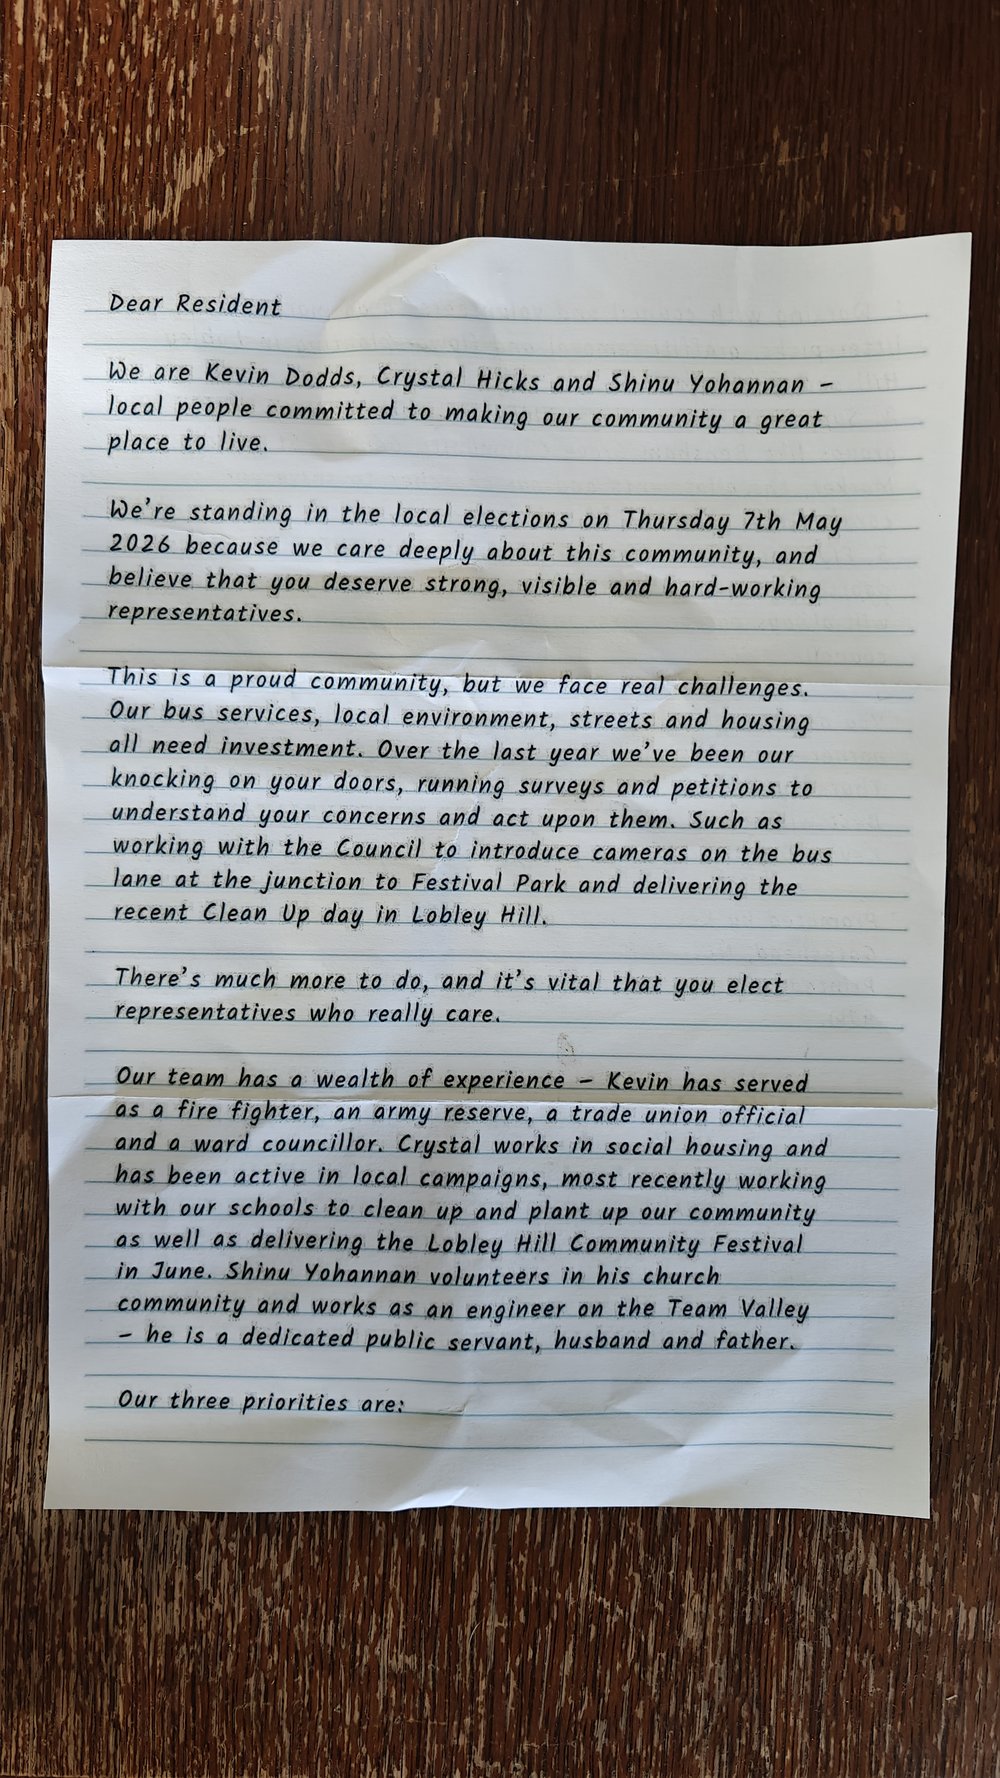 Dear Resident
We are Kevin Dodds, Crystal Hicks and Shinu Yohannan –
local people committed to making our community a great
place to live.
We're standing in the local elections on Thursday 7th May
2026 because we care deeply about this community, and
believe that you deserve strong, visible and hard-working
representatives.
This is a proud community, but we face real challenges.
Our bus services, local environment, streets and housing
all need investment. Over the last year we've been our
knocking on your doors, running surveys and petitions to
understand your concerns and act upon them. Such as
working with the Council to introduce cameras on the bus
lane at the junction to Festival Park and delivering the
recent Clean Up day in Lobley Hill.
There's much more to do, and it's vital that you elect
representatives who really care.
Our team has a wealth of experience – Kevin has served
as a fire fighter, an army reserve, a trade union official
and a ward councillor. Crystal works in social housing and
has been active in local campaigns, most recently working
with our schools to clean up and plant up our community
as well as delivering the Lobley Hill Community Festival
in June. Shinu Yohannan volunteers in his church
community and works as an engineer on the Team Valley
– he is a dedicated public servant, husband and father.
Our three priorities are: